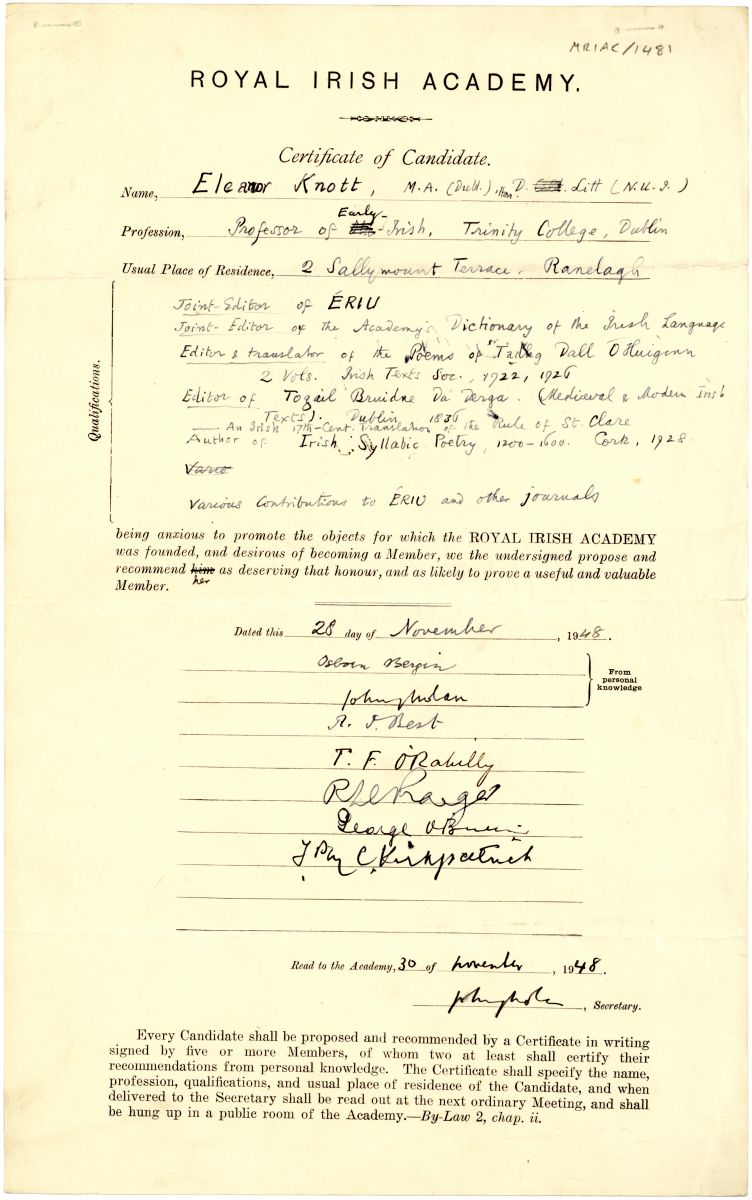 MRIAC/1481
ROYAL IRISH ACADEMY.
Certificate of Candidate.
Name, Eleanor Knott, M.A. (Dubl.), Hon. D. Litt (N.U.I.)
Profession, Professor of Early Irish, Trinity College, Dublin
Usual Place of Residence, 2 Sallymount Terrace. Ranelagh
Qualifications.
Joint-Editor of ÉRIU
Joint-Editor of the Academy's Dictionary of the Irish Language
Editor & translator of the Poems of Tadhg Dall O'Huiginn
2 Vols. Irish Texts Soc., 1922, 1926
Editor of Togail Bruidne Da Derga. (Mediaeval & Modern Irish
Texts). Dublin 1836
— An Irish 17th-Cent. Translation of the Rule of St. Clare
Author of Irish Syllabic Poetry, 1200-1600. Cork, 1928
Vario
Various Contributions to ÉRIU and other journals
being anxious to promote the objects for which the ROYAL IRISH ACADEMY
was founded, and desirous of becoming a Member, we the undersigned propose and
recommend him her as deserving that honour, and as likely to prove a useful and valuable
Member.
Dated this 28 day of November, 1948.
Osborn Bergin
From personal knowledge
R. I. Best
T. F. O'Rahilly
R Ll Praeger
George O'Brien
T Percy C Kirkpatrick
Read to the Academy, 30 of November, 1948.
, Secretary.
Every Candidate shall be proposed and recommended by a Certificate in writing
signed by five or more Members, of whom two at least shall certify their
recommendations from personal knowledge. The Certificate shall specify the name,
profession, qualifications, and usual place of residence of the Candidate, and when
delivered to the Secretary shall be read out at the next ordinary Meeting, and shall
be hung up in a public room of the Academy.—By-Law 2, chap. ii.